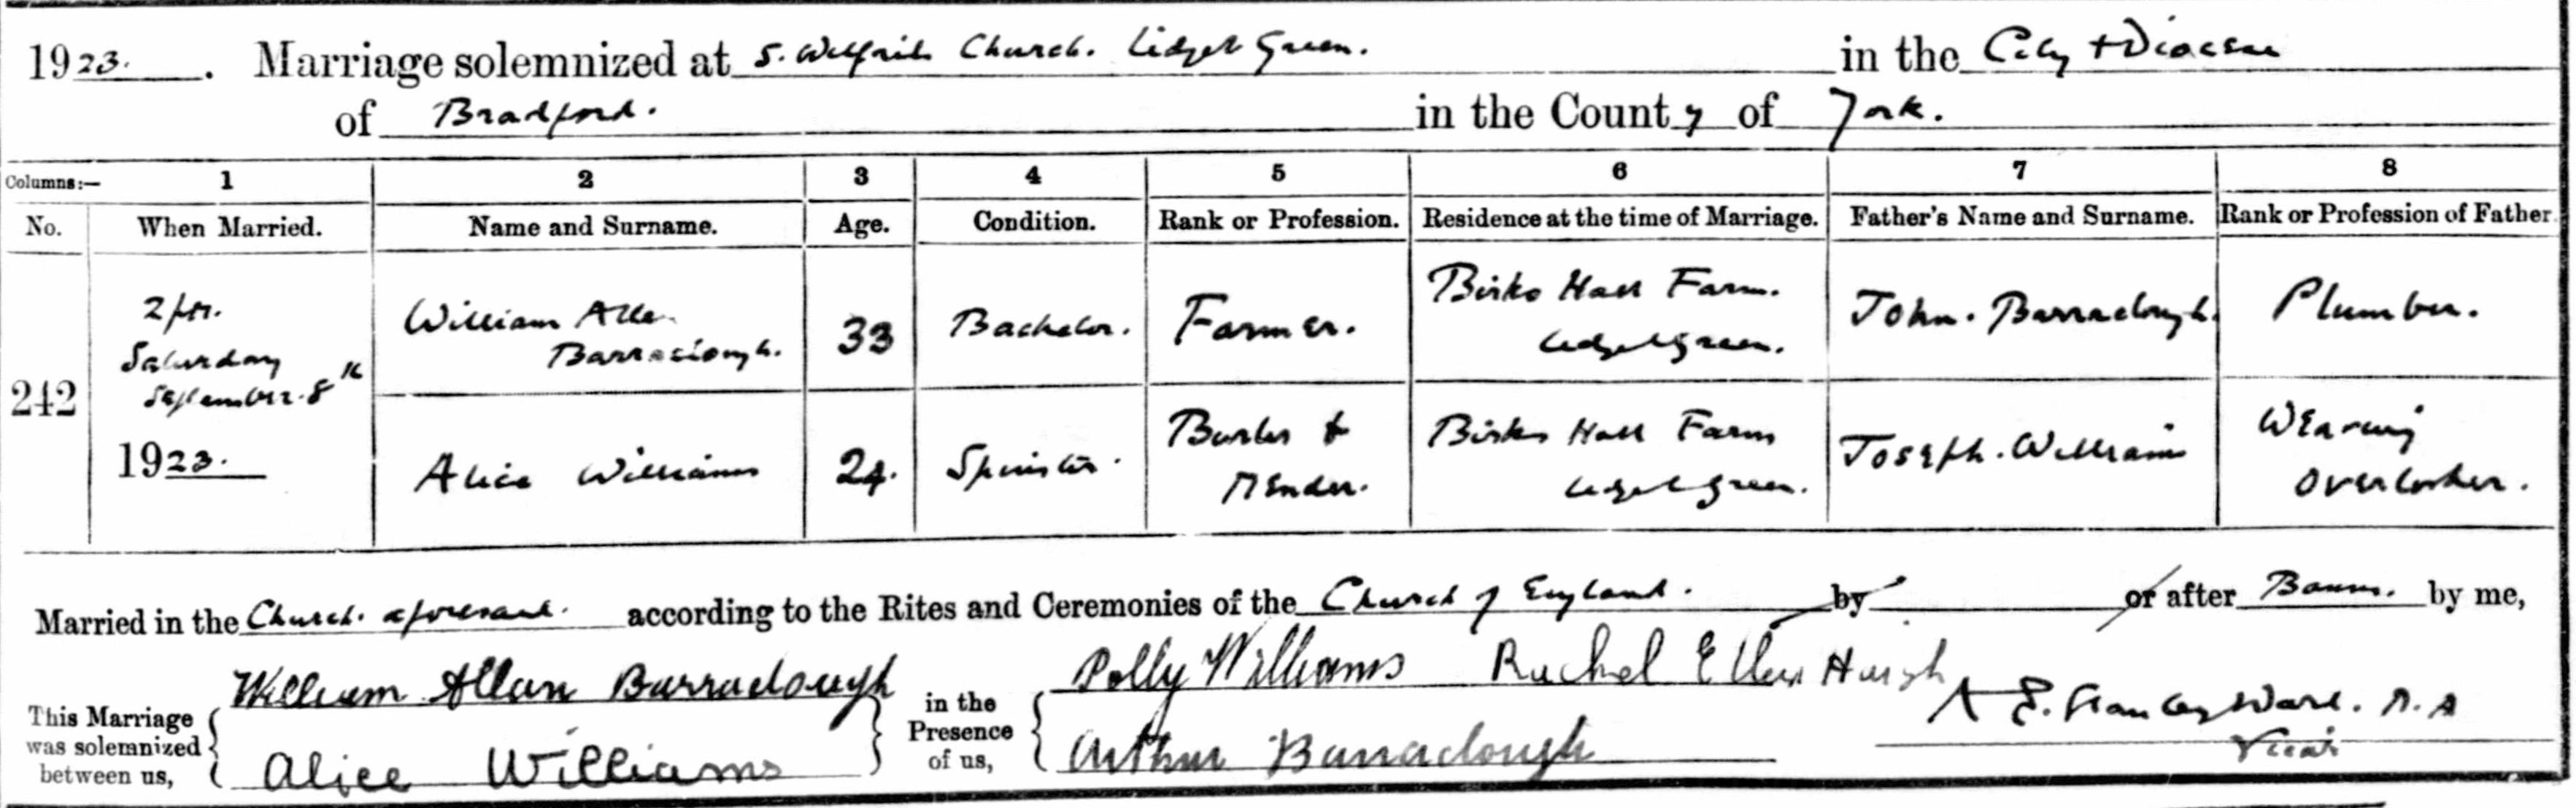 1923. Marriage solemnized at S. Wilfrids Church. Lidget Green. in the City + Diocese
of Bradford. in the County of York.
Columns:— 1 2 3 4 5 6 7 8
No. When Married. Name and Surname. Age. Condition. Rank or Profession. Residence at the time of Marriage. Father's Name and Surname. Rank or Profession of Father
242
2 pm.
Saturday
September 8th
1923.
William Allan
Barraclough.
33
Bachelor.
Farmer.
Birks Hall Farm.
Lidget Green.
John. Barraclough.
Plumber.
Alice Williams
24.
Spinster.
Burler &
Mender.
Birks Hall Farm
Lidget Green.
Joseph. Williams
Weaving
Overlooker.
Married in the Church aforesaid. according to the Rites and Ceremonies of the Church of England. by or after Banns. by me,
This Marriage was solemnized between us,
William Allan Barraclough
Alice Williams
in the Presence of us,
Polly Williams Rachel Ellen Haigh
Arthur Barraclough
E. Stanley Ward. M.A
Vicar